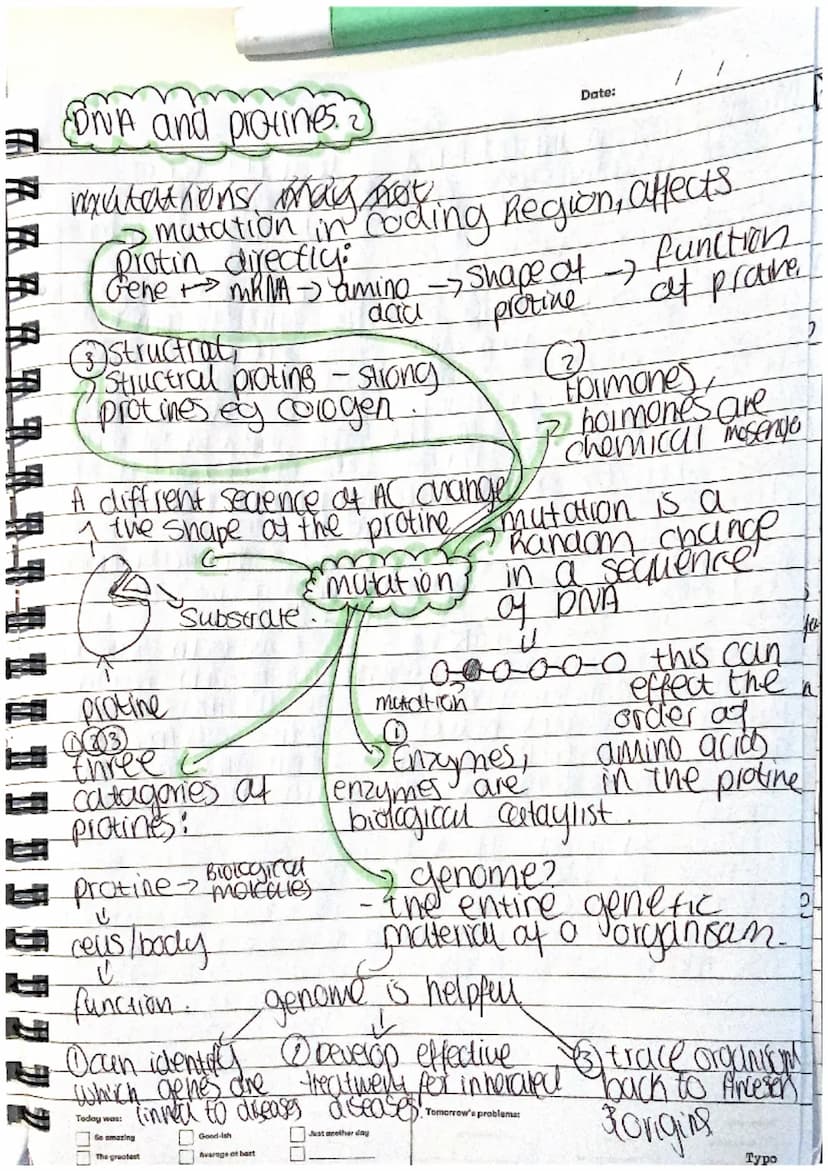 Date: / /
DNA and protines?
mutations may not
mutation in coding Region, affects
protin directly:
Gene → mRNA → amino acid → shape of protine → function of protine.
③ Structral,
structral protins - strong
protines eg cologen.
②
Hormones,
hormones are
chemical mesenge
A diffrent seqence of AC change
the shape of the protine
Substrate.
protine
mutation
mutation is a
Random change
in a sequence
of DNA
mutation
this can
effect the
order of
amino acids
in the protine
①②③
three
catagories of
protines:
①
Enzymes,
enzymes are
biological cataylist.
protine → Biological
molecules
cells/body
function.
genome?
- the entire genetic
material of a organisam.
genome is helpful
① can identify
which genes are
linned to diseases
② Develop effective
treatment for inherated
diseases.
③ trace organism
back to Ancesen
& origins
Today was:
So amazing
Good-ish
Just another day
The greatest
Average at best
Tomorrow's problems:
Typo